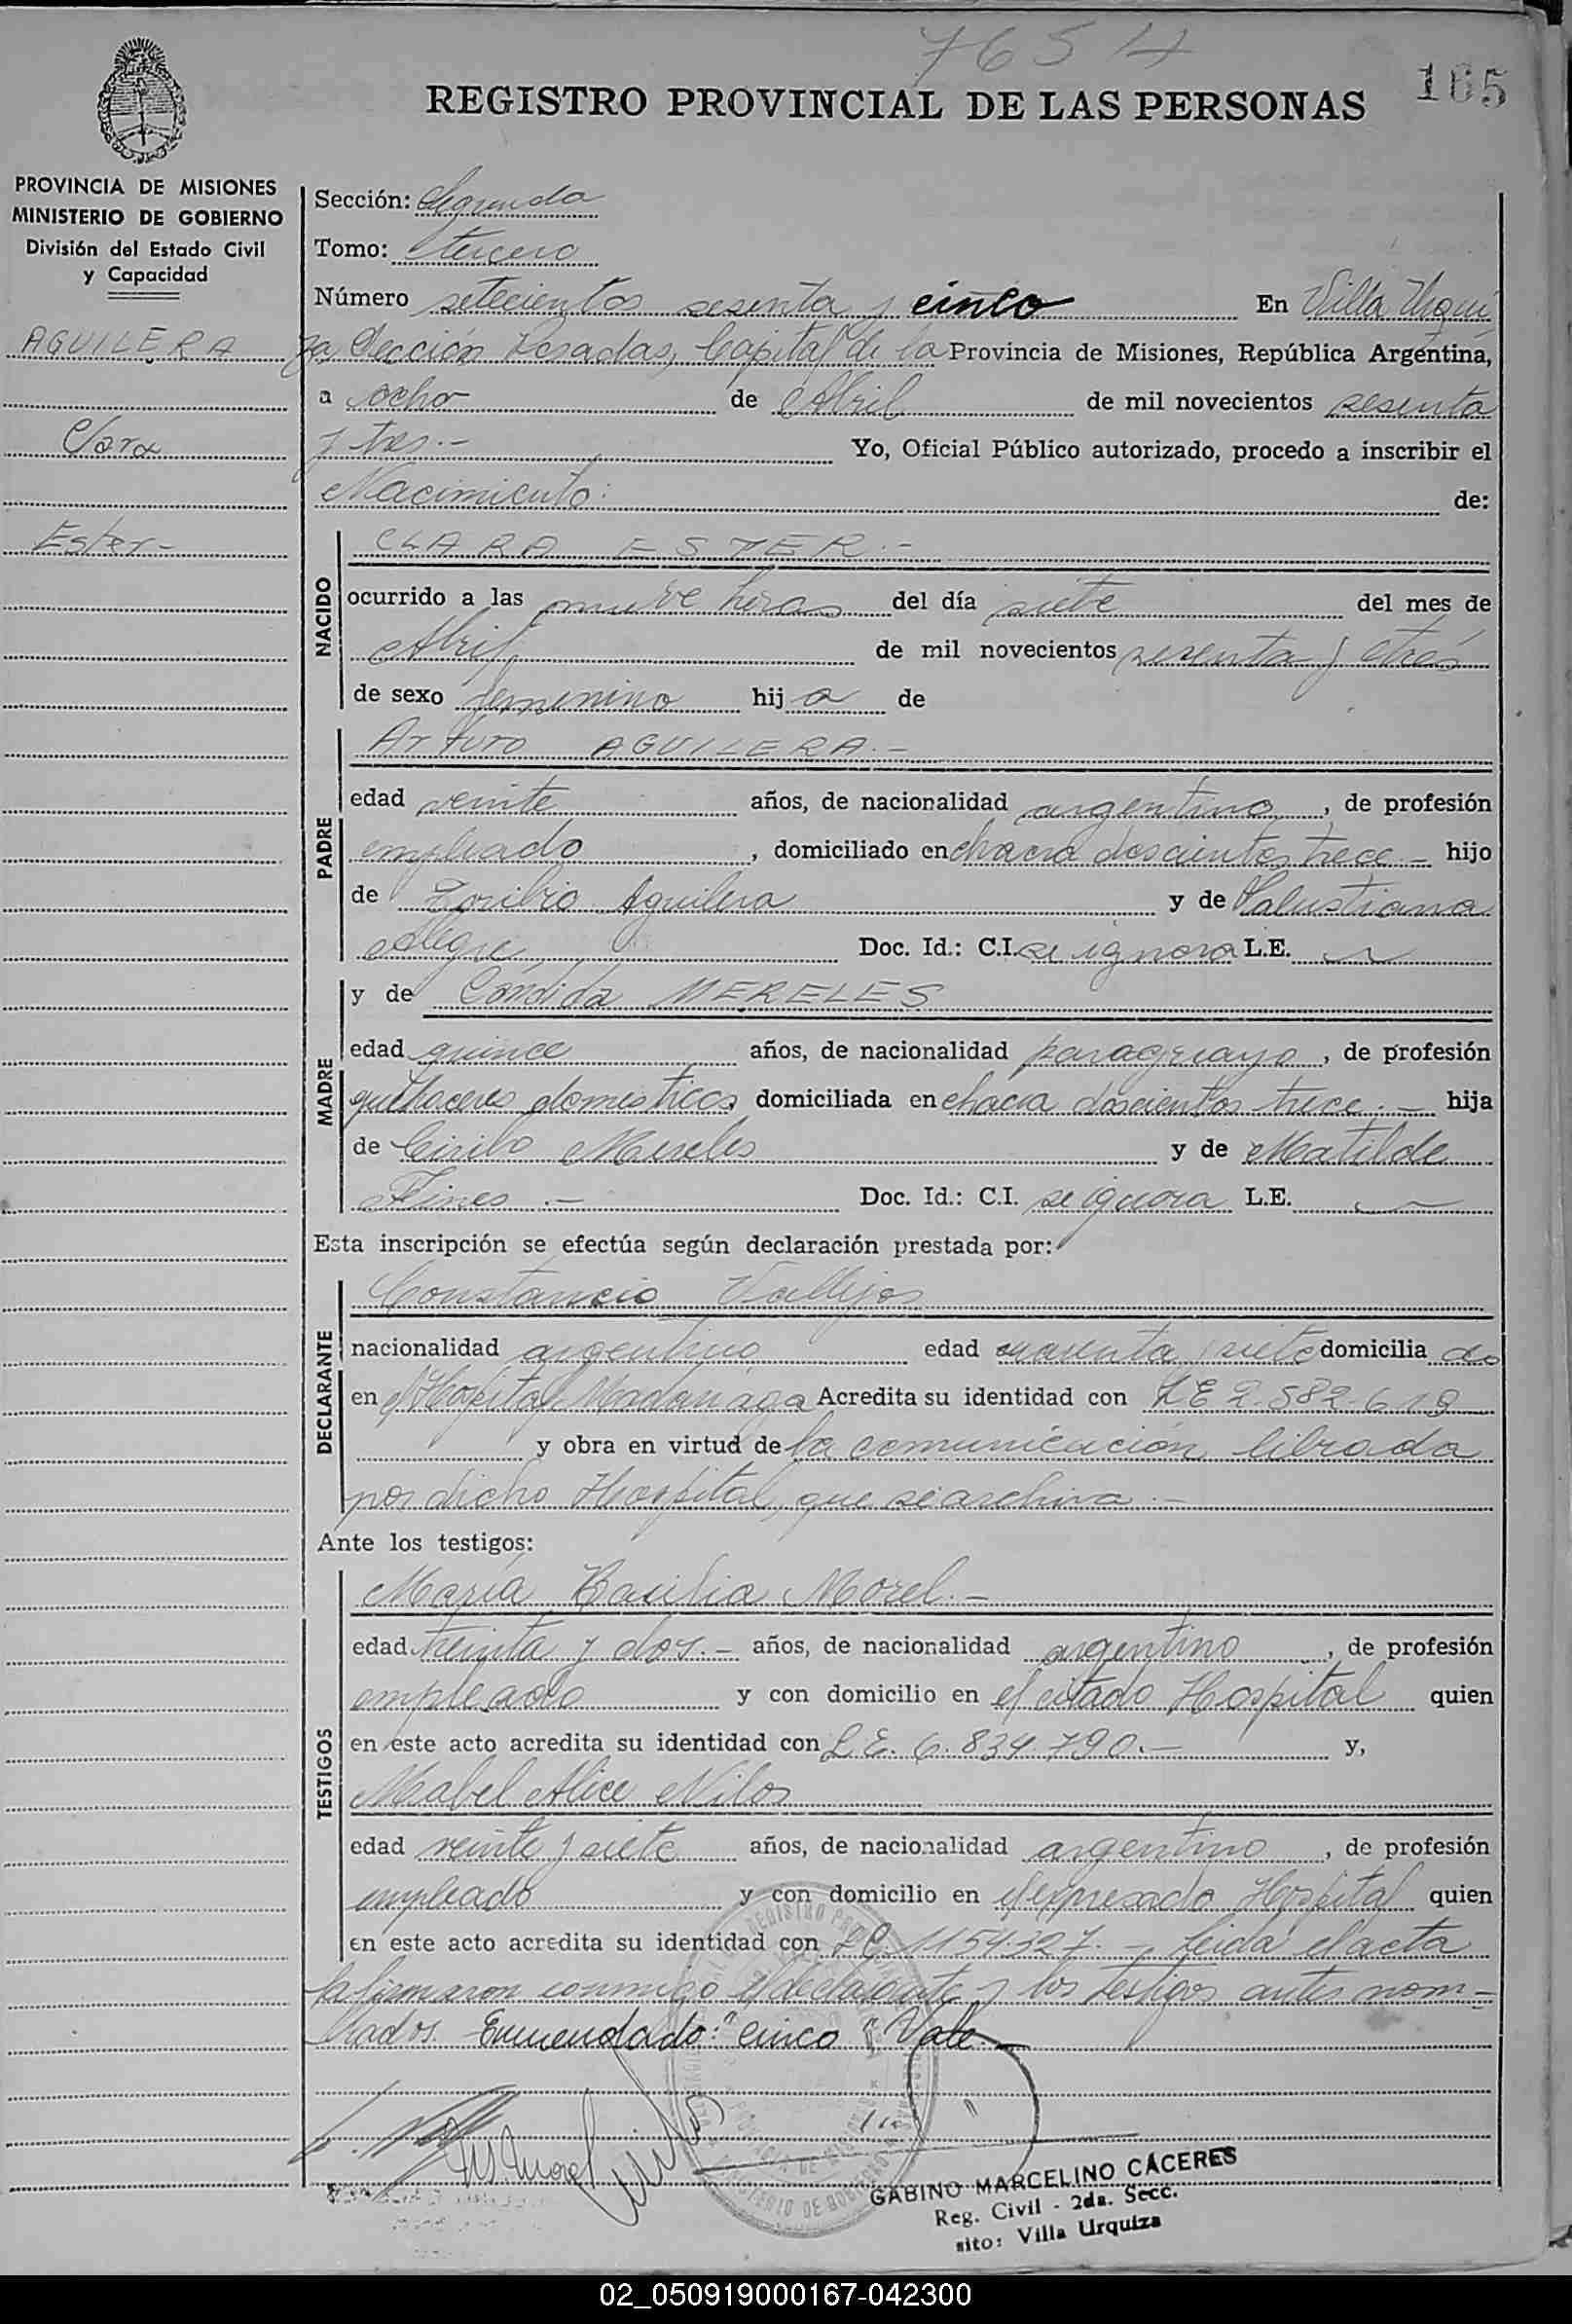 7654
165
REGISTRO PROVINCIAL DE LAS PERSONAS
PROVINCIA DE MISIONES
MINISTERIO DE GOBIERNO
División del Estado Civil
y Capacidad
AGUILERA
Clara
Ester -
Sección: Segunda
Tomo: tercero
Número setecientos sesenta y cinco En Villa Urqui
za Sección Posadas, Capital de la Provincia de Misiones, República Argentina,
a ocho de Abril de mil novecientos sesenta
y tres.- Yo, Oficial Público autorizado, procedo a inscribir el
Nacimiento: de:
NACIDO
CLARA ESTER.-
ocurrido a las nueve horas del día siete del mes de
Abril de mil novecientos sesenta y tres
de sexo femenino hija de
PADRE
Arturo AGUILERA.-
edad veinte años, de nacionalidad argentino, de profesión
empleado, domiciliado en chacra doscientos trece - hijo
de Toribio Aguilera y de Salustiana
Alegre Doc. Id.: C.I. se ignora L.E.
MADRE
y de Cándida MERELES
edad quince años, de nacionalidad paraguaya, de profesión
quehaceres domesticos domiciliada en chacra doscientos trece.- hija
de Cirilo Mereles y de Matilde
Fines.- Doc. Id.: C.I. se ignora L.E.
Esta inscripción se efectúa según declaración prestada por:
DECLARANTE
Constancio Vallejos
nacionalidad argentino edad cuarenta y siete domiciliado
en Hospital Madariaga Acredita su identidad con LE 2.582.619
y obra en virtud de la comunicación librada
por dicho Hospital, que se archiva.-
Ante los testigos:
TESTIGOS
María Basilia Morel.-
edad treinta y dos.- años, de nacionalidad argentino, de profesión
empleado y con domicilio en el citado Hospital quien
en este acto acredita su identidad con L.E. 6.834.790.- y,
Mabel Alice Nilos
edad veinte y siete años, de nacionalidad argentino, de profesión
empleado y con domicilio en el expresado Hospital quien
en este acto acredita su identidad con LC 1154.327.- Leida el acta
la firmaron conmigo el declarante y los testigos antes nom-
brados. Enmendado: "cinco" Vale
GABINO MARCELINO CACERES
Reg. Civil - 2da. Secc.
sito: Villa Urquiza
02_050919000167-042300